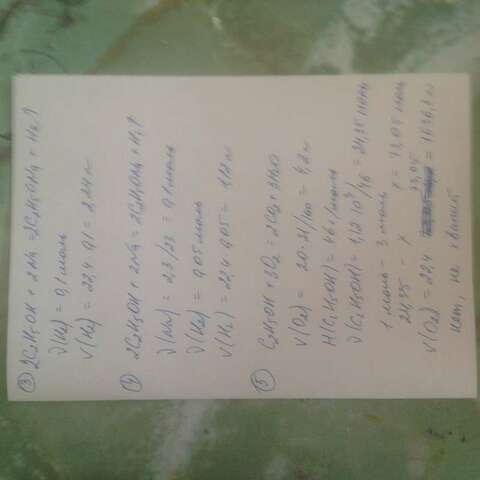 ③ 2C₂H₅OH + 2Na = 2C₂H₅ONa + H₂↑
ν(H₂) = 0,1 моль
V(H₂) = 22,4 · 0,1 = 2,24 л
④ 2C₂H₅OH + 2Na = 2C₂H₅ONa + H₂↑
ν(Na) = 2,3/23 = 0,1 моль
ν(H₂) = 0,05 моль
V(H₂) = 22,4 · 0,05 = 1,12 л
⑤ C₂H₅OH + 3O₂ = 2CO₂ + 3H₂O
V(O₂) = 20 · 21/100 = 4,2 л
M(C₂H₅OH) = 46 г/моль
ν(C₂H₅OH) = 1,12 · 10³/46 = 24,35 моль
1 моль - 3 моль
24,35 - x x = 73,05 моль
V(O₂) = 22,4 73,05 = 1636,3 л
нет, не хватит